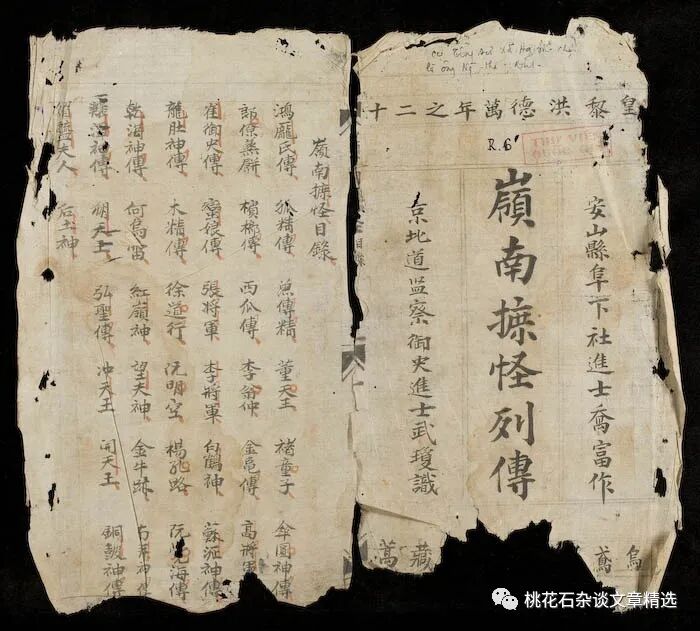 皇黎洪德萬年之二十
R.6
安山縣阜下社進士喬富作
嶺南摭怪列傳
京北道监察御史進士武瓊識
鳶
藏萬
嶺南摭怪目錄
鴻龐氏傳 狐精傳 魚傳精 董天王 褚童子 傘圓神傳
蒸餅 檳榔傳 西瓜傳 李翁仲 金龜傳 高將軍
崔御史傳 蠻娘傳 張將軍 李將軍 白鶴神 蘇瀝神傳
龍肚神傳 木精傳 徐道行 阮明空 楊孔路 阮覺海傳
乾海神傳 何烏雷 紅嶺神 望夫神 金牛跡 神傳
神傳 朔天王 弘聖傳 冲天王 開天王 銅鼓神傳
夫人 后土神
桃花石杂谈文章精选